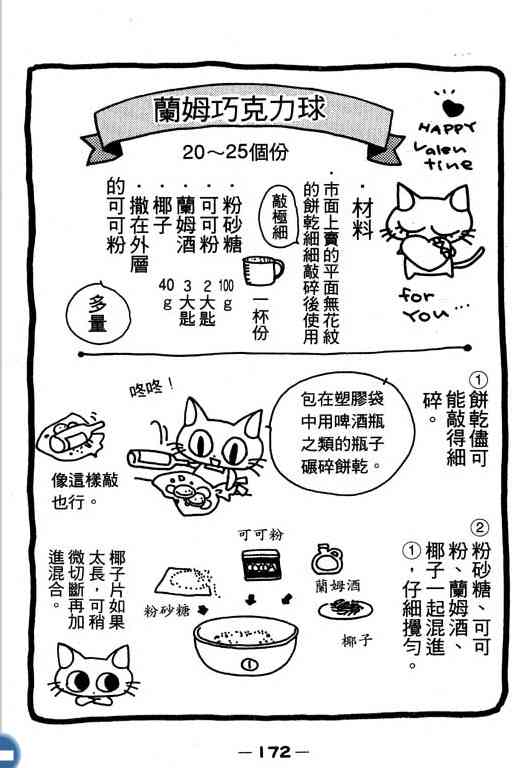 蘭姆巧克力球
20～25個份
HAPPY
Valen
tine
for
YOU…
・材料
・市面上賣的平面無花紋
的餅乾細細敲碎後使用
敲極細
一杯份
・粉砂糖 100g
・可可粉 2大匙
・蘭姆酒 3大匙
・椰子 40g
・撒在外層
的可可粉
多量
①餅乾儘可
能敲得細
碎。
包在塑膠袋
中用啤酒瓶
之類的瓶子
碾碎餅乾。
咚咚！
像這樣敲
也行。
②粉砂糖、可可
粉、蘭姆酒、
椰子一起混進
①，仔細攪勻。
可可粉
COCOA
粉砂糖
蘭姆酒
椰子
①
椰子片如果
太長，可稍
微切斷再加
進混合。
—172—